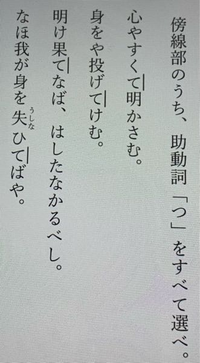 傍線部のうち、助動詞「つ」をすべて選べ。
心やすくて明かさむ。
身をや投げてけむ。
明け果てなば、はしたなかるべし。
なほ我が身を失ひてばや。
うしな